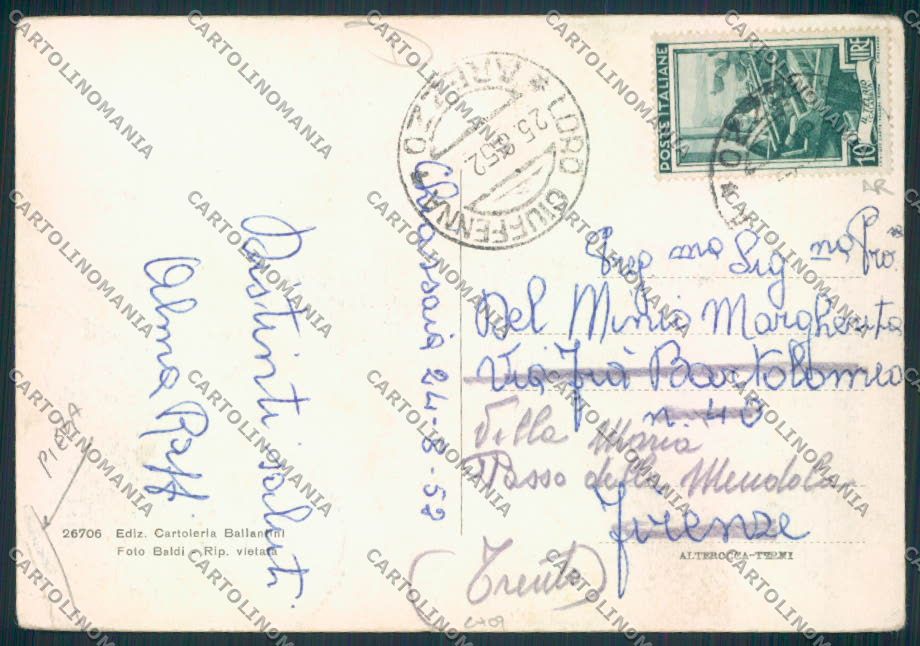 Chiassaia 24-8-52
Distinti saluti
Alma Raffi
26706 Ediz. Cartoleria Ballantini
Foto Baldi - Rip. vietata
PIEGA
LORO CIUFFENNA
* AREZZO *
25.8.52
POSTE ITALIANE
LIRE 10
Preg ma Sig na Pro.
Del Minio Margherita
Via Frà Bartolomeo
n. 40
Villa Maria
Passo della Mendola
Firenze
(Trento)
ALTEROCCA-TERNI
CARTOLINOMANIA